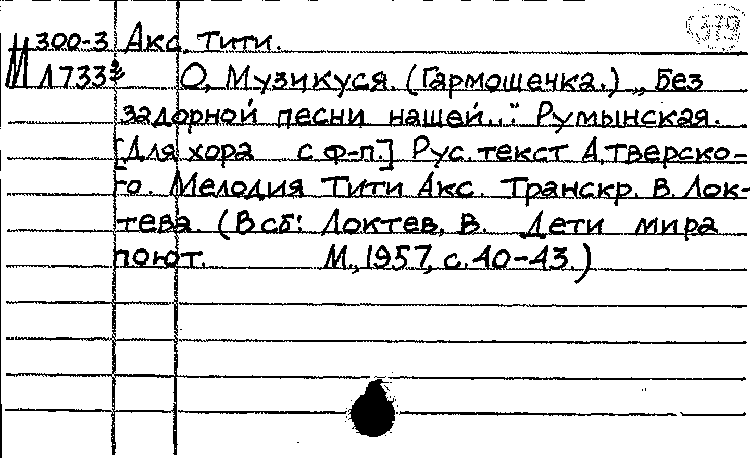 379
М 300-3 Акс, Тити.
Л733 О, Музикуся. (Гармошечка.) „Без
задорной песни нашей..." Румынская.
[Для хора с ф-п.] Рус. текст А. Тверско-
го. Мелодия Тити Акс. Транскр. В. Лок-
тева. (В сб: Локтев, В. Дети мира
поют. М., 1957, с. 40-43.)